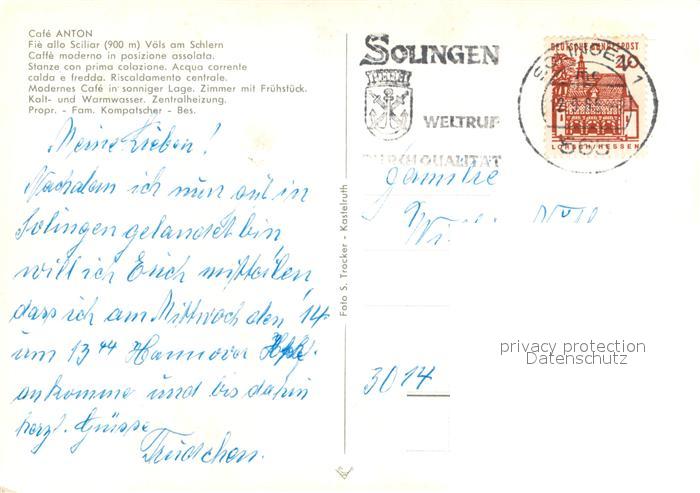 Café ANTON
Fiè allo Sciliar (900 m) Völs am Schlern
Caffè moderno in posizione assolata.
Stanze con prima colazione. Acqua corrente
calda e fredda. Riscaldamento centrale.
Modernes Café in sonniger Lage. Zimmer mit Frühstück.
Kalt- und Warmwasser. Zentralheizung.
Propr. - Fam. Kompatscher - Bes.
Meine Lieben!
Nachdem ich nun gut in
Solingen gelandet bin,
will ich Euch mitteilen,
dass ich am Mittwoch den 14
um 13 44 Hannover Hpbf.
ankomme und bis dahin
herzl. Grüsse
Trudchen.
Foto S. Trocker - Kastelruth
SOLINGEN
WELTRUF
DURCH QUALITÄT
SOLINGEN 1
DEUTSCHE BUNDESPOST
20
LORSCH/HESSEN
Familie
3014
privacy protection
Datenschutz